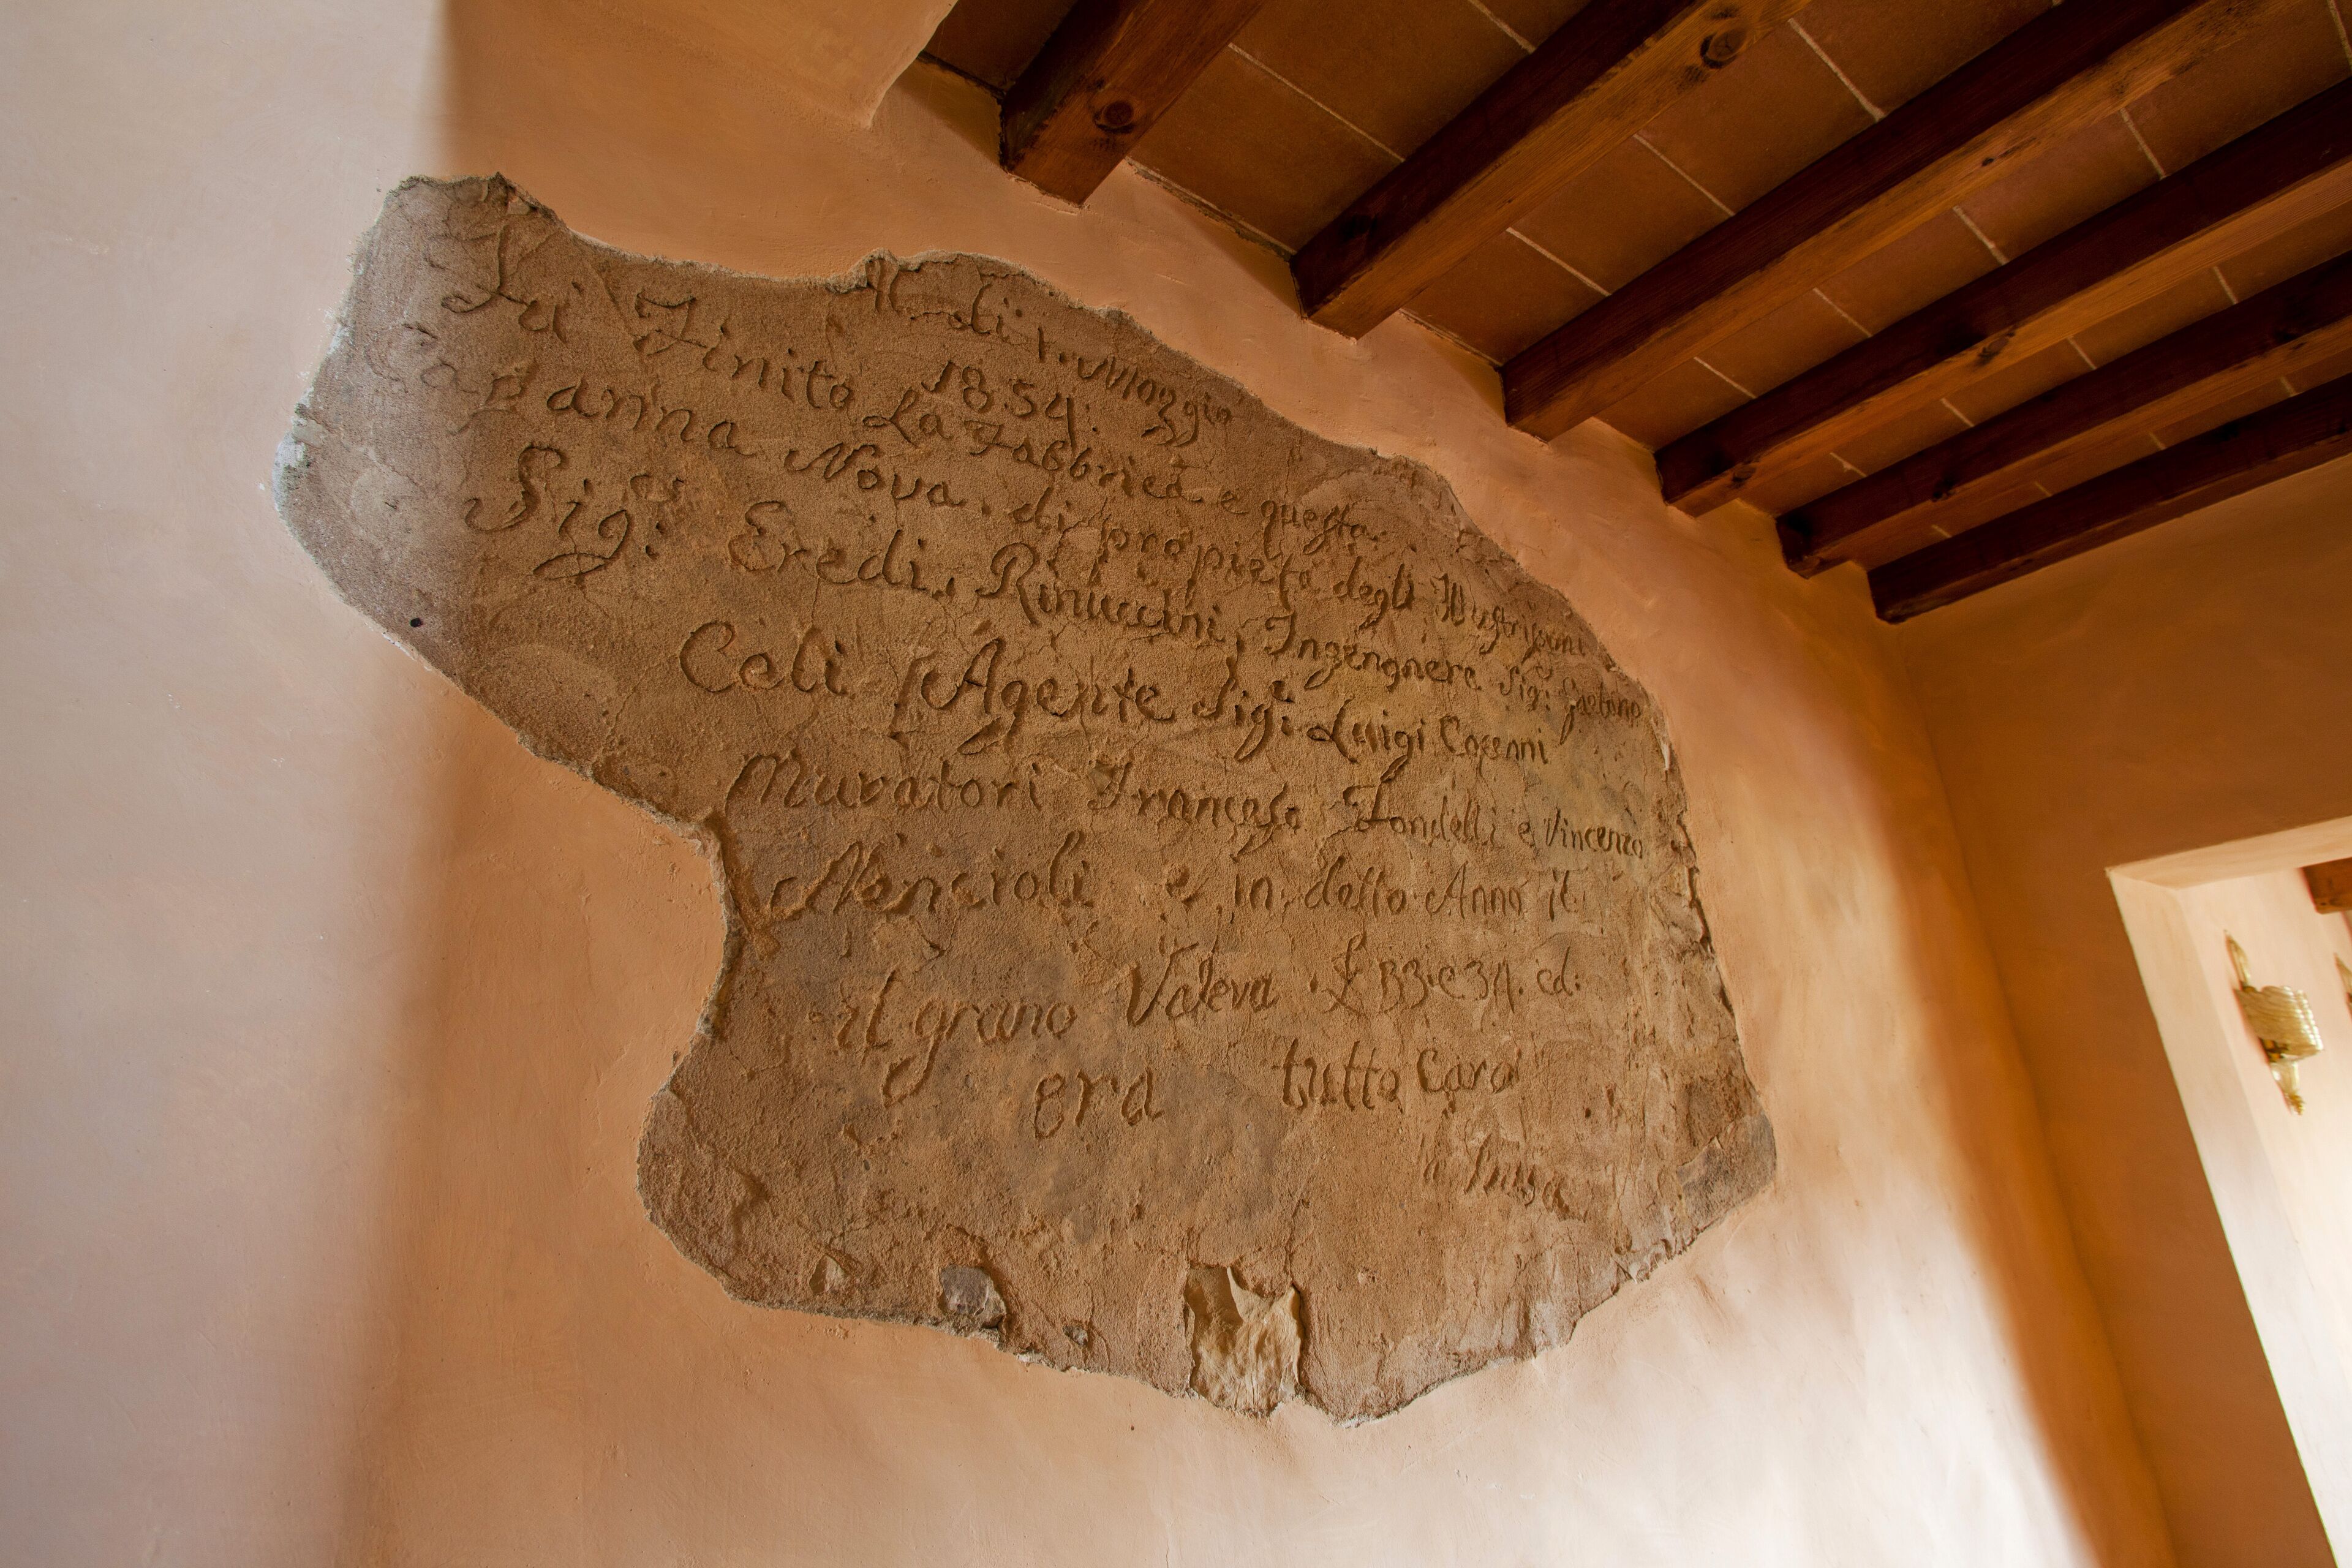 Al di 1. Maggio
1854.
Fu Finito La Fabbrica e questa
Capanna Nova. di propietà degli Illustrissimi
Sig.ri Eredi. Rinuccini, Ingengnere Sig: Gaetano
Celi Agente Sig.e Luigi
Muratori Francesco Fondelli e Vincenzo
Nencioli e in detto Anno il
il grano Valeva £ 33. e 34. ed:
era tutto Caro